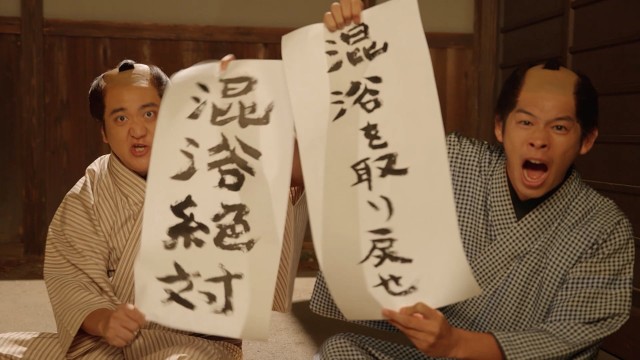 混浴を取り戻せ
混浴絶対